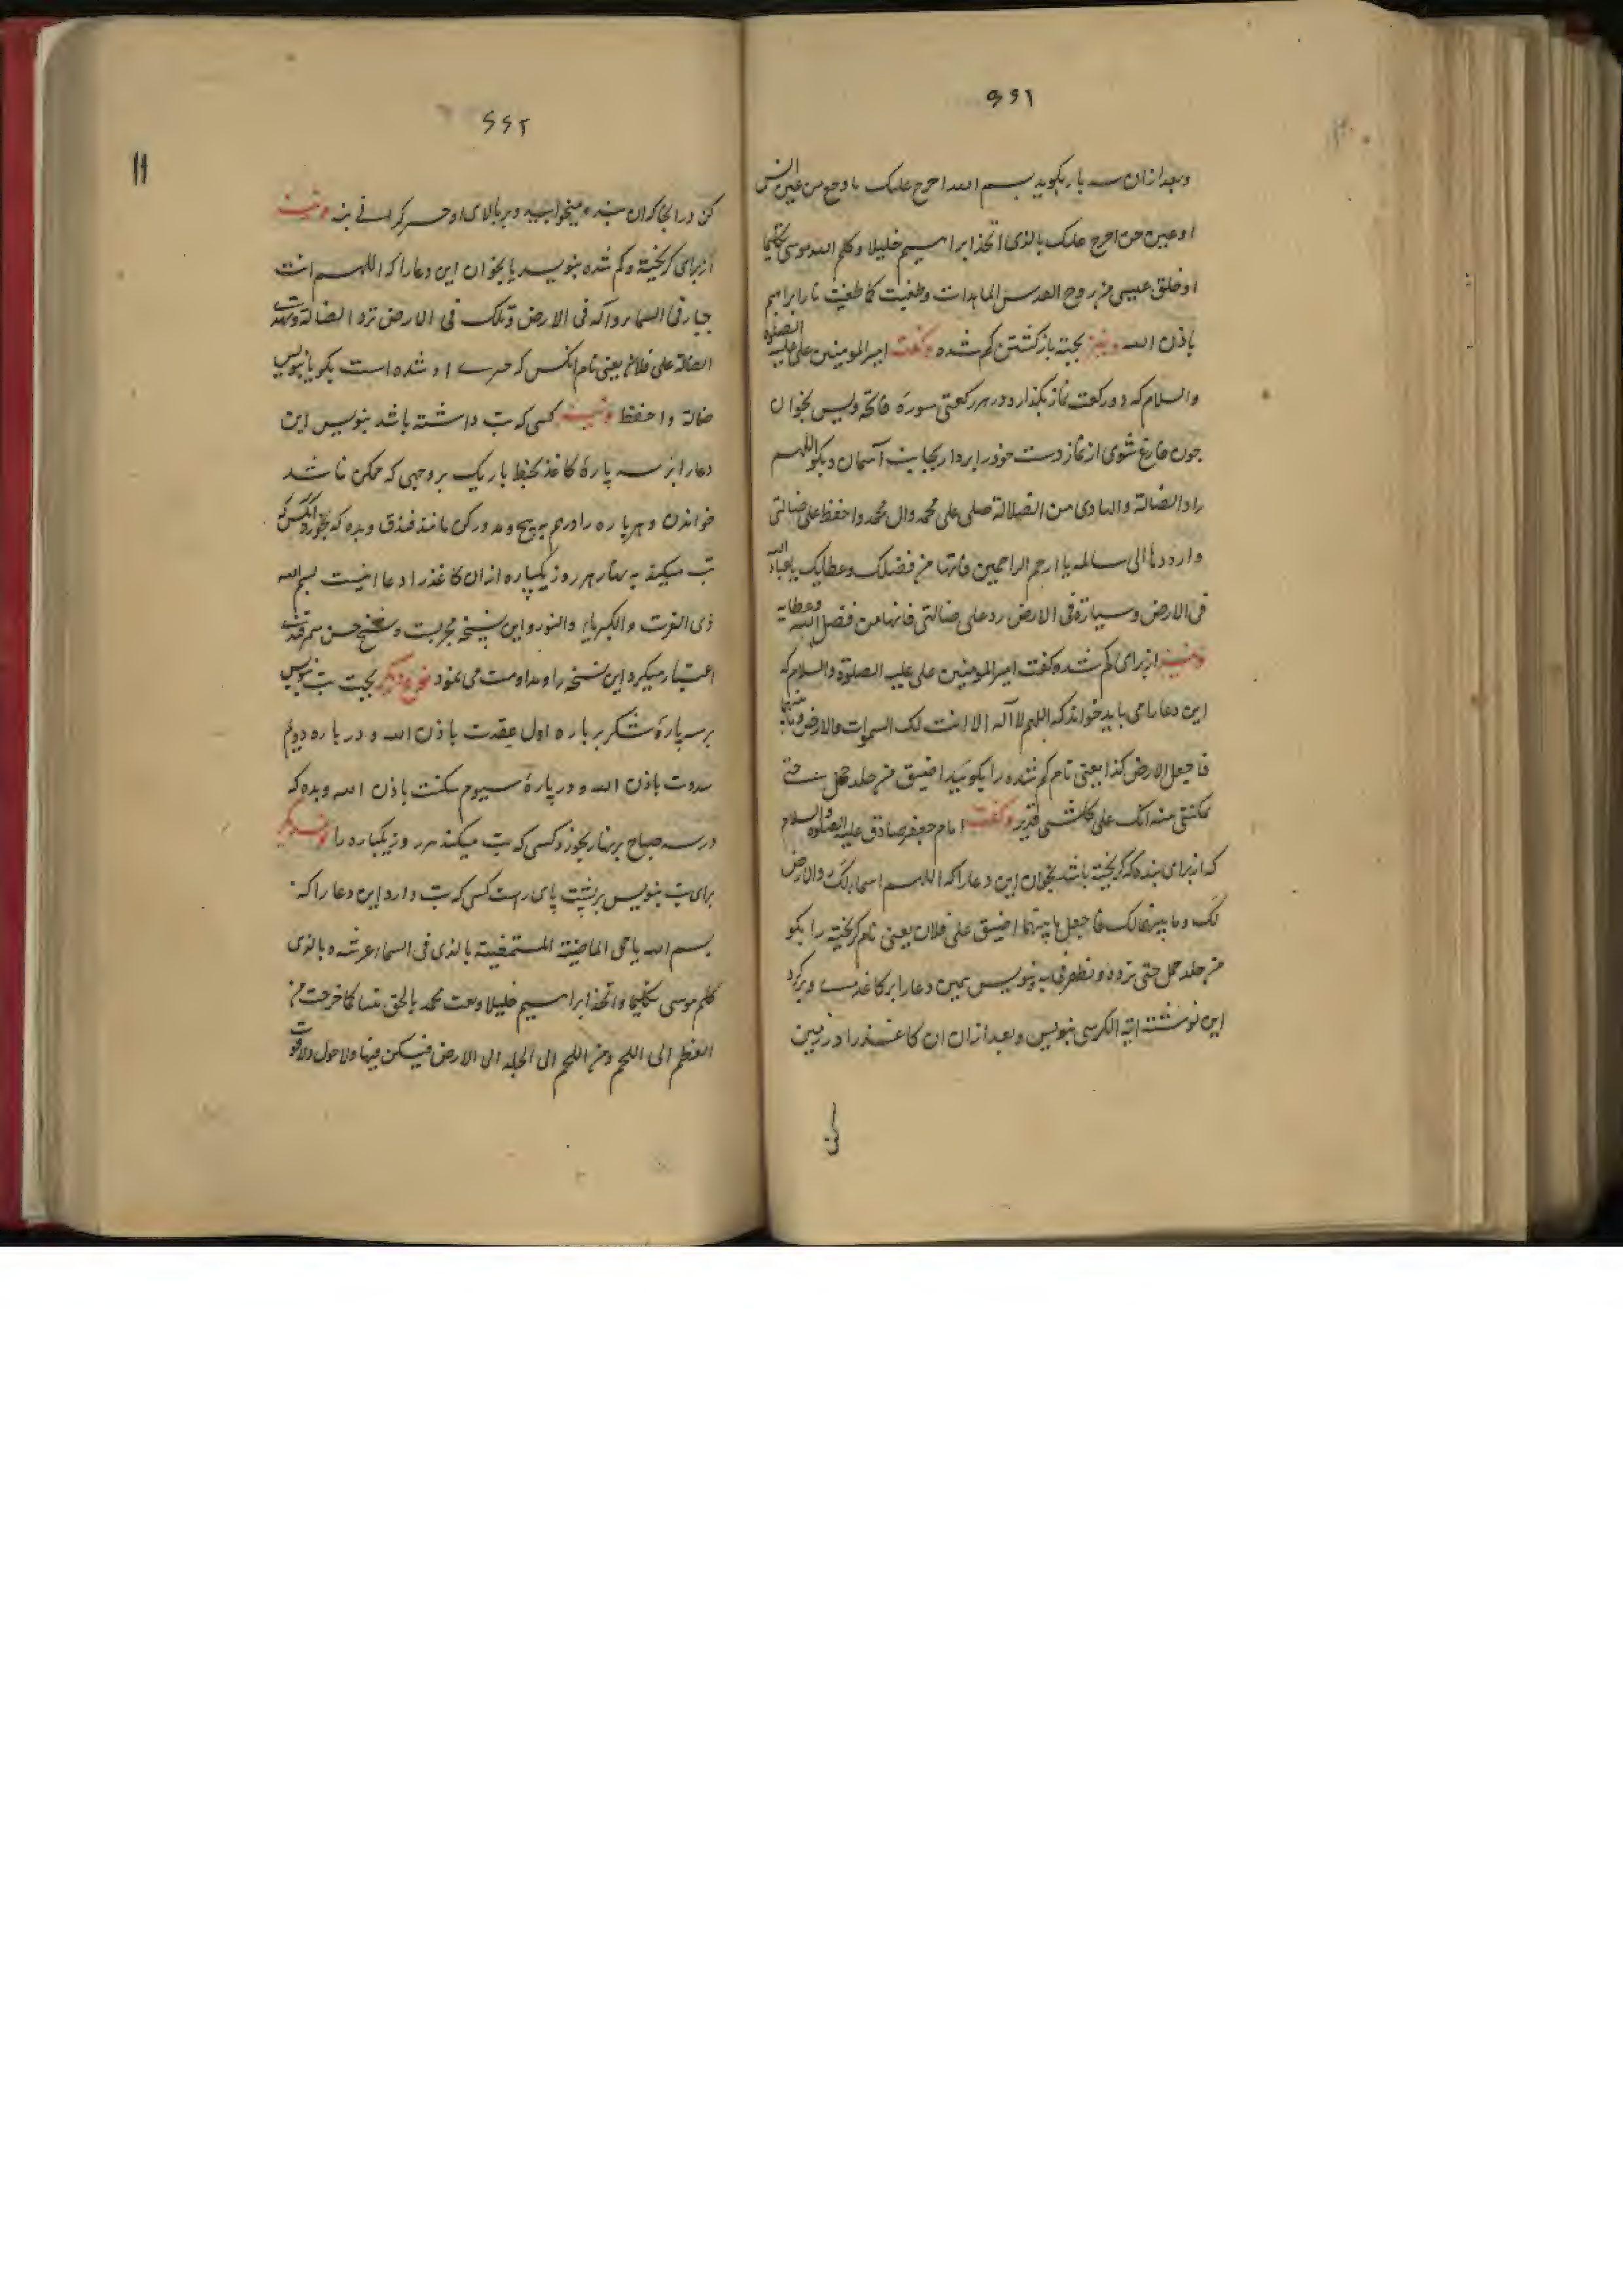 ۶۶۱
وبعد ازان سه بار بکوید بسم الله اخرج علیک من عین انس
او عین جن اخرج علیک بالذی اتخذ ابراهیم خلیلا وکلم الله موسی تکلیما
او خلق عیسی من روح القدس وطفیت کما طفیت نار ابراهیم
باذن الله ونیز بجته بازکشتن کم شده وکفت امیرالمومنین علی علیه الصلوة
والسلام که دو رکعت نماز بکذار ودر هر رکعتی سورهٔ فاتحه ویس بخوان
جون فارغ شوی از نماز دست خود را بردار بجانب آسمان وبکو اللهم
راد الضالة والهادی من الضلالة صلی علی محمد وال محمد واحفظ علی ضالتی
وارددها الی سالمه یا ارحم الراحمین فانها من فضلک وعطایک یا عباد الله
فی الارض وسیاره فی الارض رد علی ضالتی فانها من فضل الله وعطایه
ونیز از برای کم شده کفت امیرالمومنین علی علیه الصلوة والسلام که
این دعا را می باید خواند که اللهم لا آله الا انت لک السموات والارض وما بینهما
فاجعل الارض کذا یعنی نام کم شده را بکویید اضیق من جلد جمل حتی
تمکننی منه انک علی کل شی قدیر وکفت امام جعفر صادق علیه الصلوة والسلام
که از برای بنده که کریخته باشد بخوان این دعا را که اللهم السما لک والارض
لک وما بینهما لک فاجعل ما بینهما اضیق علی فلان یعنی نام کریخته را بکو
من جلد جمل حتی ترده وتظفرنی به وبنویس همین دعا را بر کاغذ وبر کرد
این نوشته ایة الکرسی بنویس وبعد ازان ان کاغذ را در زمین
۶۶۲
کن در انجا که ان بنده میخوابید وبر بالای او جیز کرانی بنه ونیز
از برای کریخته وکم شده بنویسد یا بخوان این دعا را که اللهم انت
جبار فی السما واله فی الارض وملک فی الارض ترد الضالة
الضالة علی فلان یعنی نام انکس که جیزی از او شده است بکو یا بنویس
ضالة واحفظ ونیز کسی که تب داشته باشد بنویس این
دعا را بر سه پارهٔ کاغذ بخط باریک بر وجهی که ممکن نباشد
خواندن وهر پاره را در هم پیچ ومدور کن مانند فندق وبده که بخورد انکس که
تب میکند به نهار هر روز یکپاره ازان کاغذ را دعا اینست بسم الله
ذی العزت والکبریاء والنور واین نسخه مجربست وشیخ حسن سمرقندی
اعتبار میکرد این نسخه را ومداومت می نمود نوع دیکر بجهت تب بنویس
بر سه پارهٔ شکر بر پاره اول عقدت باذن الله ودر پاره دویم
شدوت باذن الله ودر پارهٔ سیوم سکنت باذن الله وبده که
در سه صباح بر نهار بخورد کسی که تب میکند هر روز یکپاره را نوع دیکر
برای تب بنویس بر پشت پای راست کسی که تب دارد این دعا را که
بسم الله بالذی فی السماء عرشه وبالذی
کلم موسی تکلیما واتخذ ابراهیم خلیلا وبعث محمد بالحق نبیا کما خرجت من
العظم الی اللحم ومن اللحم الی الجلد الی الارض فیسکن فیها ولا حول ولا قوت